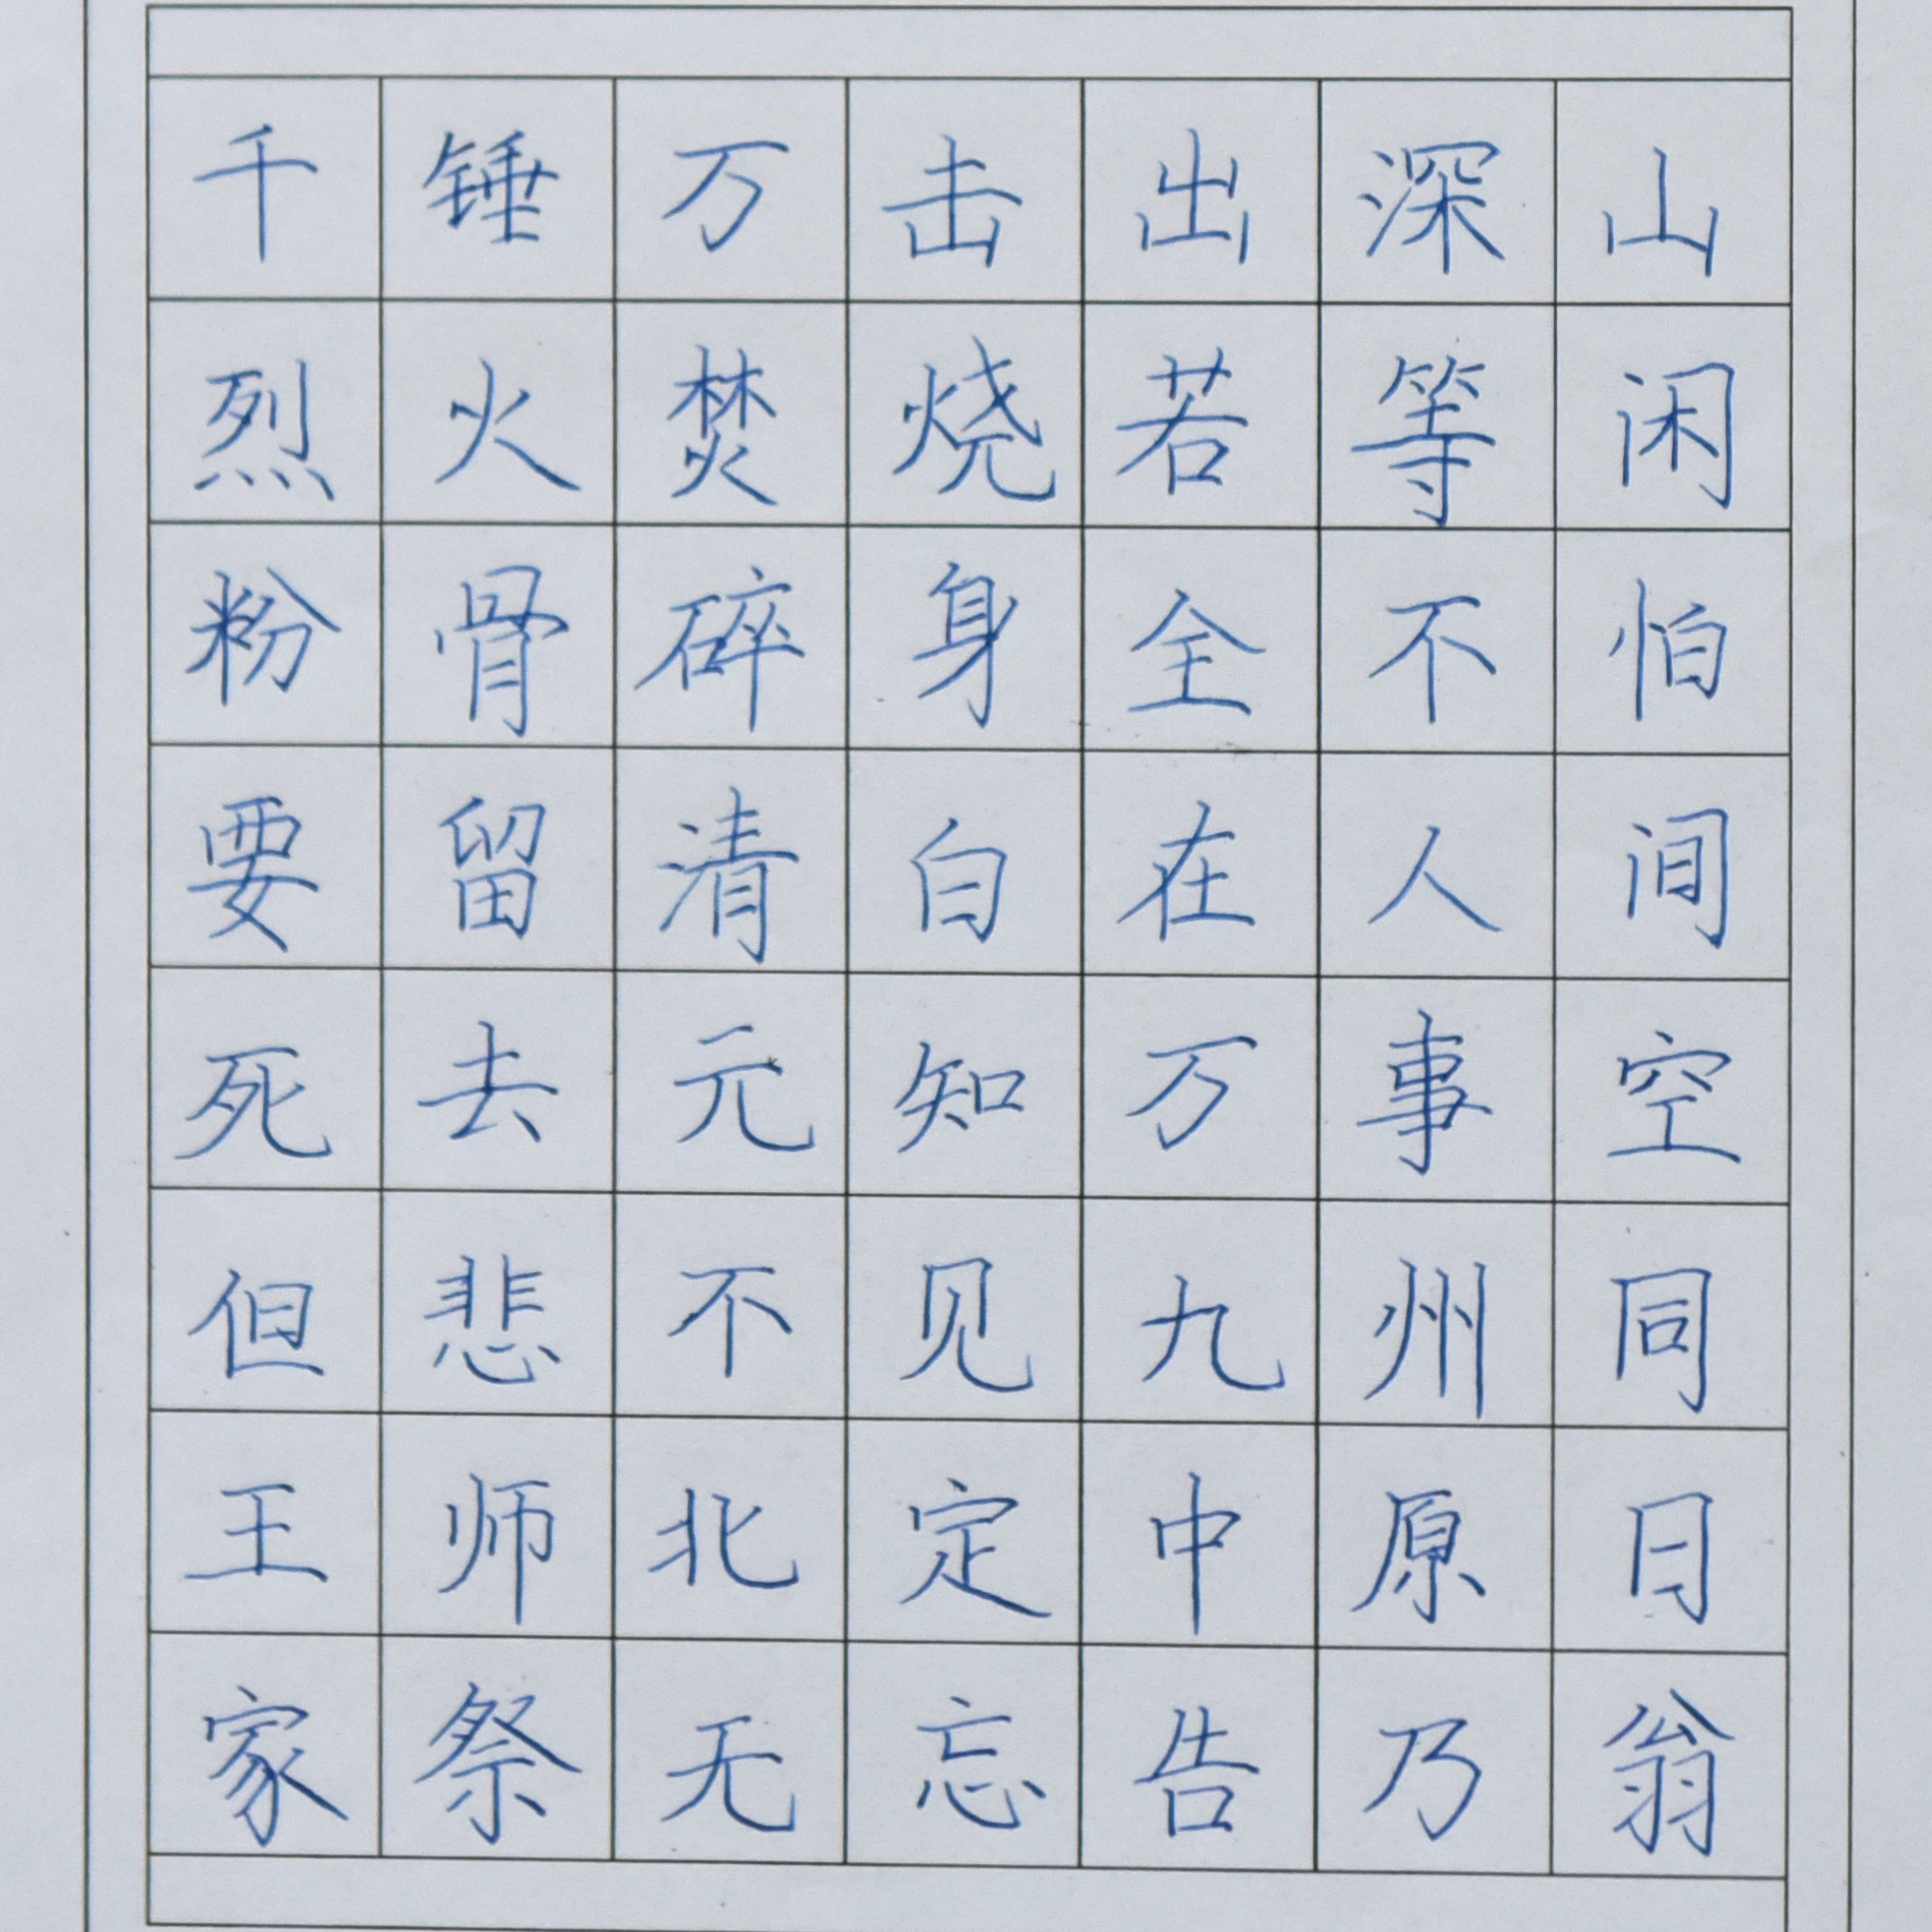 千锤万击出深山
烈火焚烧若等闲
粉骨碎身全不怕
要留清白在人间
死去元知万事空
但悲不见九州同
王师北定中原日
家祭无忘告乃翁